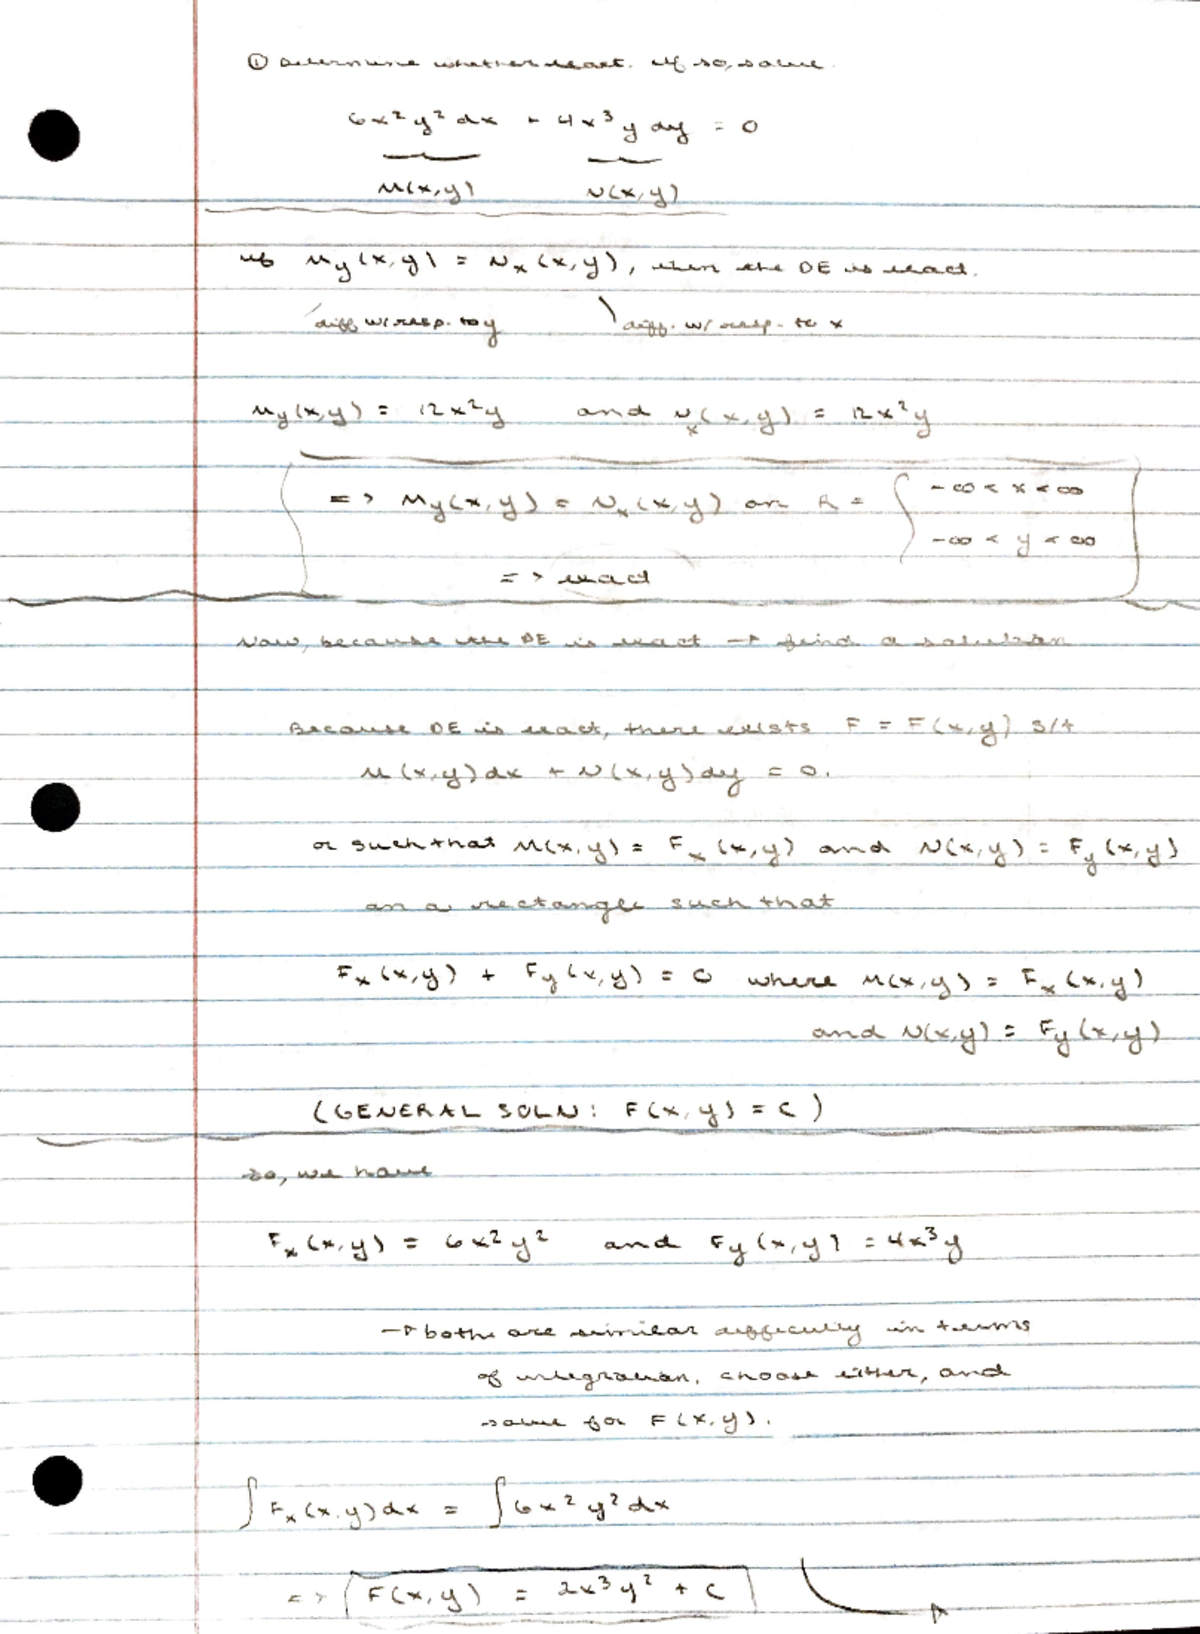 ① Determine whether exact. If so, solve.
6x²y²dx + 4x³y dy = 0
M(x,y) N(x,y)
if My(x,y) = Nx(x,y), then the DE is exact.
diff w/ resp. to y diff. w/ resp. to x
My(x,y) = 12x²y and Nx(x,y) = 12x²y
=> My(x,y) = Nx(x,y) on R = { -∞ < x < ∞
-∞ < y < ∞
=> exact
Now, because the DE is exact → find a solution
Because DE is exact, there exists F = F(x,y) s/t
M(x,y)dx + N(x,y)dy = 0.
or such that M(x,y) = Fx(x,y) and N(x,y) = Fy(x,y)
on a rectangle such that
Fx(x,y) + Fy(x,y) = 0 where M(x,y) = Fx(x,y)
and N(x,y) = Fy(x,y)
(GENERAL SOLN: F(x,y) = C)
so, we have
Fx(x,y) = 6x²y² and Fy(x,y) = 4x³y
→ both are similar difficulty in terms
of integration, choose either, and
solve for F(x,y).
∫Fx(x,y)dx = ∫6x²y²dx
=> F(x,y) = 2x³y² + C